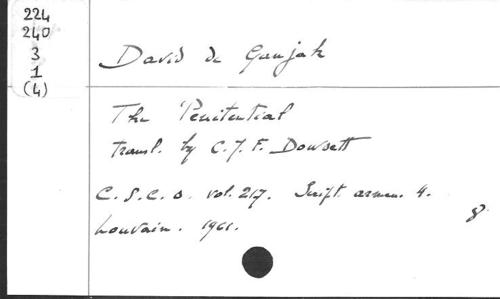 224
240
3
1
(4)
David de Ganjak
The Penitential
transl. by C. J. F. Dowsett
C. S. C. O. vol. 217. Script. armen. 4.
Louvain. 1961.
8°